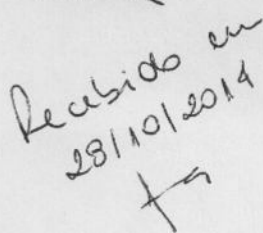 Recebido em
28/10/2014